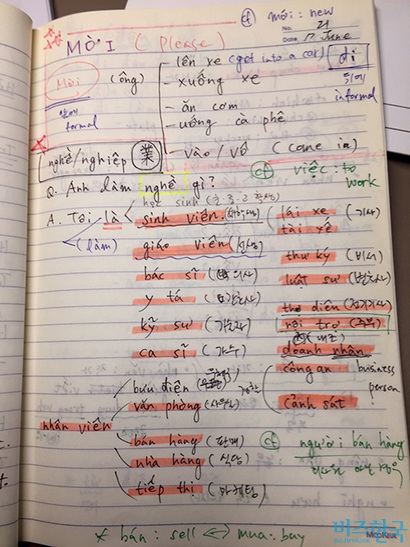 cf mới : new
No. 21
Date 17 June
MỜI ( please )
Mời (ông)
lên xe (get into a car) đi
xuống xe 뒤에
앞에 formal
ăn cơm informal
uống cà phê
vào / vô (come in)
nghề/nghiệp 業
cf việc : to work
Q. Anh làm nghề gì?
học sinh
A. Tôi là sinh viên. lái xe (기사)
(làm) tài xế
giáo viên thư ký (비서)
bác sĩ (의사) luật sư (변호사)
y tá (간호사) thợ điện (전기기사)
kỹ sư (기술자) nội trợ (주부)
ca sĩ (가수) doanh nhân
business person
bưu điện công an
văn phòng (사무실) cảnh sát
nhân viên
bán hàng (판매) cf người : bán hàng
nhà hàng (식당)
tiếp thị (마케팅)
* bán : sell ↔ mua : buy
비즈한국